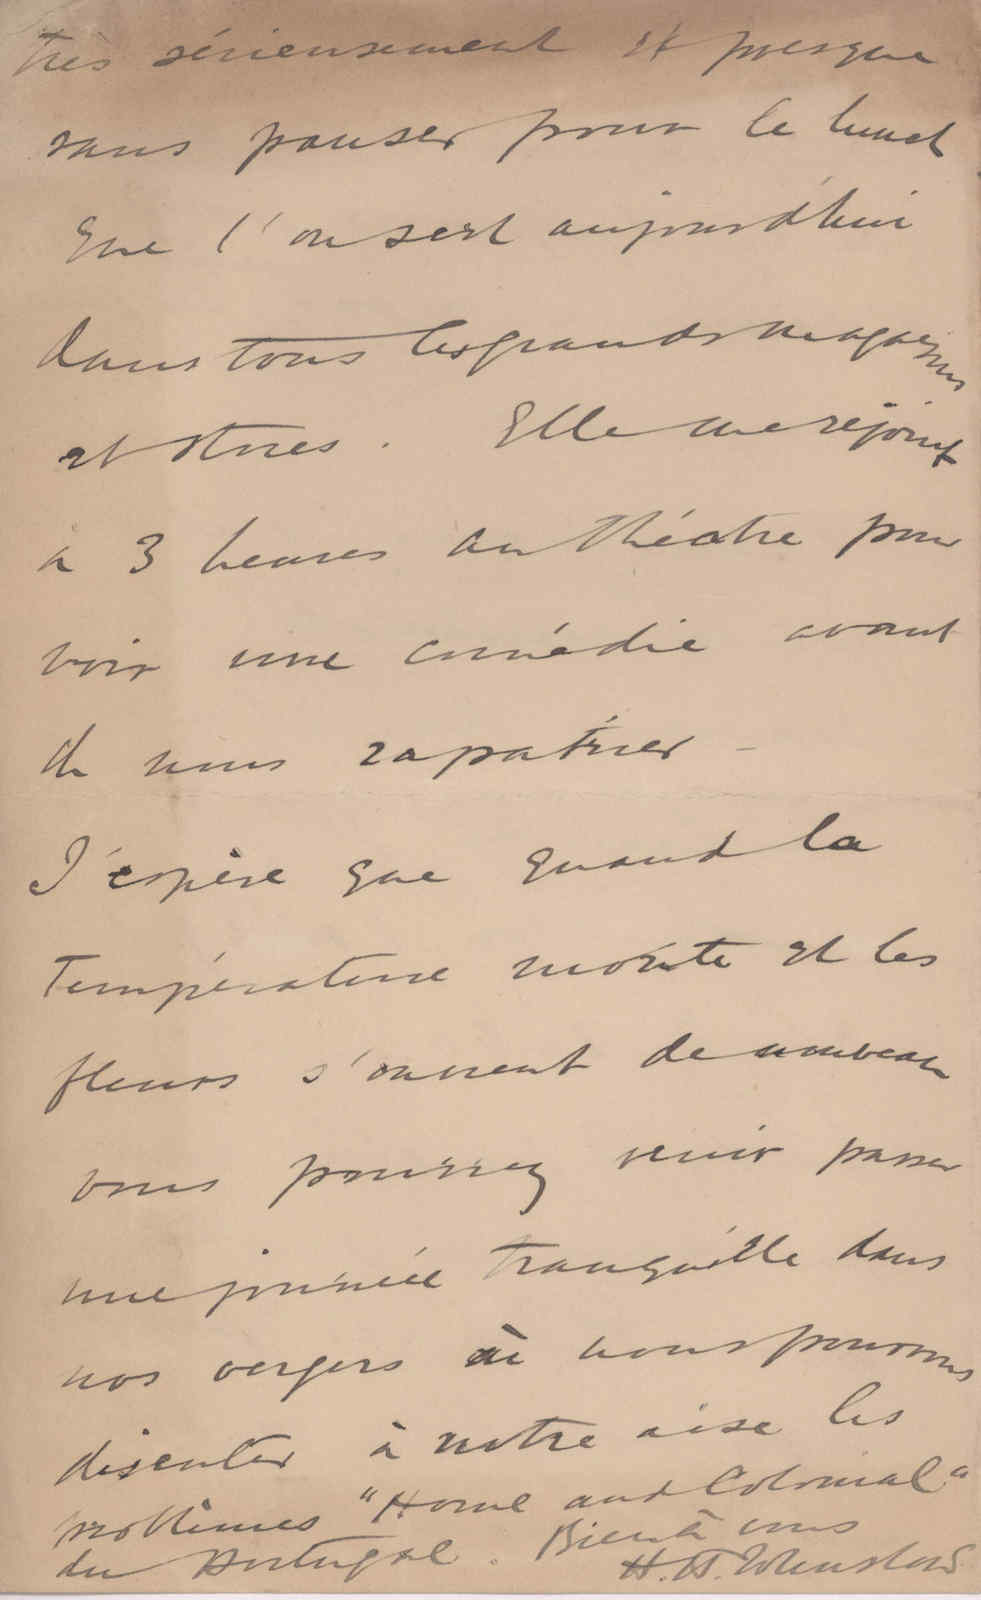 très sérieusement et presque
sans pauser pour le lunch
que l'on sert aujourd'hui
dans tous les grands magasins
et stores. Elle me rejoint
à 3 heures au théâtre pour
voir une comédie avant
de nous rapatrier -
J'espère que quand la
Température monte et les
fleurs s'ouvrent de nouveau
vous pourrez venir passer
une journée tranquille dans
nos vergers où nous pourrons
discuter à notre aise les
problèmes "Home and Colonial"
du Portugal. Bien à vous
H. H.